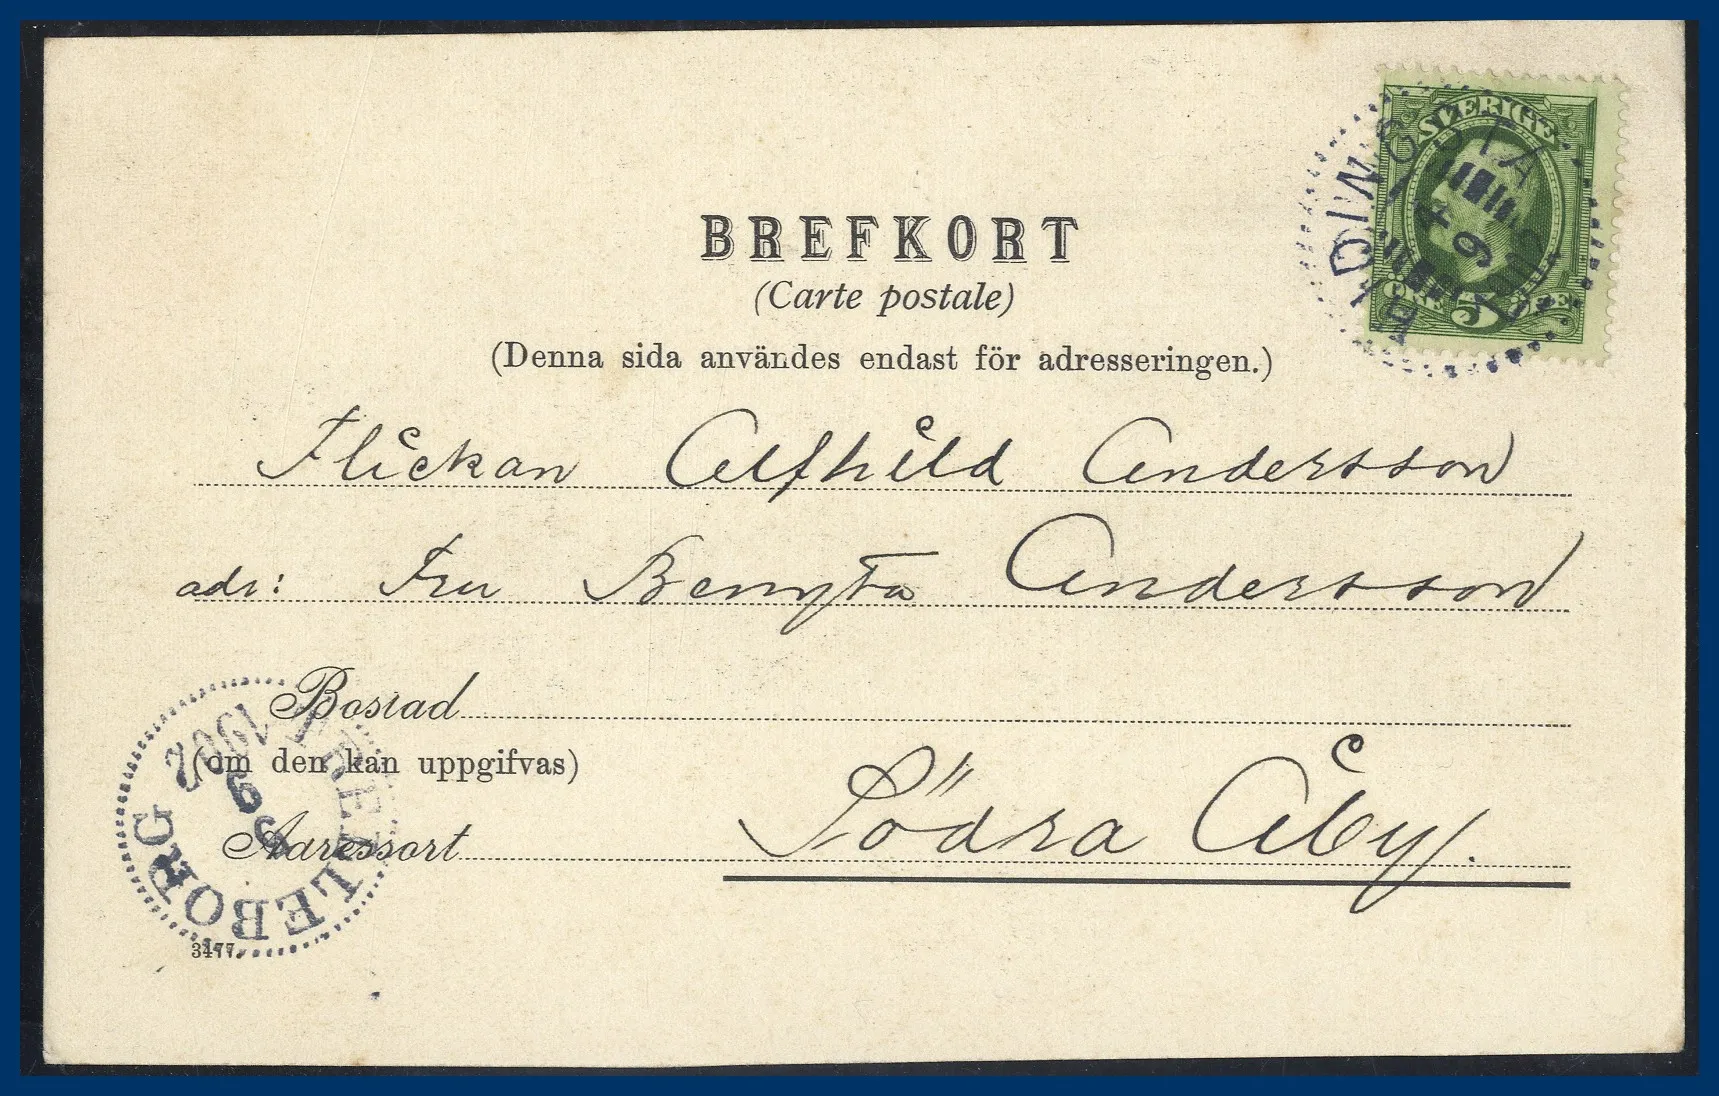 BREFKORT
(Carte postale)
(Denna sida användes endast för adresseringen.)
SVERIGE
5
Flickan Alfhild Andersson
adr: Fru Bengta Andersson
Bostad
(om den kan uppgifvas)
Adressort
Södra Åby.
TRELLEBORG
1902
3477.